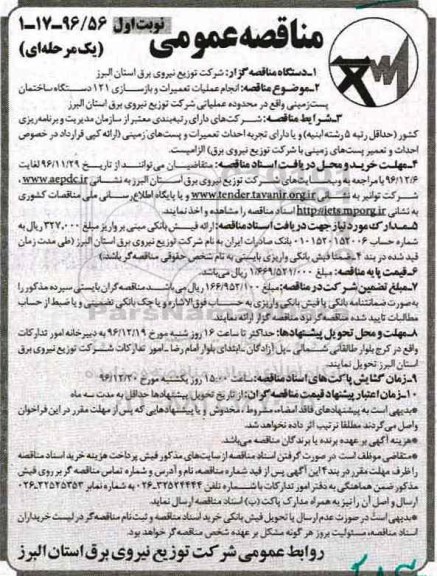 نوبت اول
۱-۱۷-۹۶/۵۶
مناقصه عمومی
(یک مرحله‌ای)
۱-دستگاه مناقصه گزار: شرکت توزیع نیروی برق استان البرز
۲-موضوع مناقصه: انجام عملیات تعمیرات و بازسازی ۱۲۱ دستگاه ساختمان
پست زمینی واقع در محدوده عملیاتی شرکت توزیع نیروی برق استان البرز
۳-شرایط مناقصه: شرکت‌های دارای رتبه‌بندی معتبر از سازمان مدیریت و برنامه‌ریزی
کشور (حداقل رتبه ۵ رشته ابنیه) و یا دارای تجربه احداث تعمیرات و پست‌های زمینی (ارائه کپی قرارداد در خصوص
احداث و تعمیر پست‌های زمینی با شرکت توزیع نیروی برق) الزامیست.
۴-مهلت خرید و محل دریافت اسناد مناقصه: متقاضیان می‌توانند از تاریخ ۹۶/۱۱/۲۹ لغایت
۹۶/۱۲/۶ با مراجعه به وب سایت‌های شرکت توزیع نیروی برق استان البرز به نشانی www.aepdc.ir ،
شرکت توانیر به نشانی www.tender.tavanir.org.ir و یا پایگاه اطلاع رسانی ملی مناقصات کشوری
به نشانی http://iets.mporg.ir اسناد مناقصه را مشاهده و اخذ نمایند.
۵-مدارک مورد نیاز جهت دریافت اسناد مناقصه: ارائه فیش بانکی مبنی بر واریز مبلغ ۳۲۷،۰۰۰ ریال به
شماره حساب ۰۱۰۱۵۲۰۱۵۲۰۰۶ بانک صادرات ایران به نام شرکت توزیع نیروی برق استان البرز (طی مدت زمان
قید شده در بند ۴-ضمنا فیش بانکی واریزی بایستی به نام شخص حقوقی مناقصه گر باشد.)
۶-قیمت پایه مناقصه: مبلغ ۱/۶۶۹/۵۲۱/۰۰۰ ریال می‌باشد.
۷-مبلغ تضمین شرکت در مناقصه: مبلغ ۱۶۶/۹۵۲/۱۰۰ ریال می‌باشد: مناقصه گران بایستی سپرده مذکور را
به صورت ضمانتنامه بانکی یا فیش بانکی واریزی به حساب فوق الاشاره و یا چک بانکی تضمینی و یا ضبط از حساب
مطالبات تایید شده مناقصه گر نزد مناقصه گزار ارائه نمایند.
۸-مهلت و محل تحویل پیشنهادها: حداکثر تا ساعت ۱۶ روز شنبه مورخ ۹۶/۱۲/۱۹ به دبیرخانه امور تدارکات
واقع در کرج بلوار طالقانی شمالی -پل آزادگان -ابتدای بلوار امام رضا -امور تدارکات شرکت توزیع نیروی برق
استان البرز تحویل نمایند.
۹-زمان گشایش پاکت های اسناد مناقصه: ساعت ۱۵:۰۰ روز یکشنبه مورخ ۹۶/۱۲/۲۰
۱۰-زمان اعتبار پیشنهاد قیمت مناقصه گران: از تاریخ تحویل پیشنهادها حداقل به مدت سه ماه
*بدیهی است به پیشنهادهای فاقد امضاء، مشروط ، مخدوش و یا پیشنهادهایی که پس از مهلت مقرر در این فراخوان
واصل می‌گردند مطلقا ترتیب اثر داده نخواهد شد.
*هزینه آگهی بر عهده برنده یا برندگان مناقصه می‌باشد
*متقاضی موظف است در صورت گرفتن اسناد مناقصه از سایت‌های مذکور فیش پرداخت هزینه خرید اسناد مناقصه
را ظرف مهلت مقرر در بند ۴ این آگهی پس از قید شماره مناقصه، نام و آدرس و شماره تماس مناقصه گر بر روی فیش
مذکور ضمن هماهنگی به دفتر امور تدارکات با شماره تلفن ۳۲۵۲۴۴۴۴-۰۲۶ به شماره نمابر ۳۲۵۲۵۳۵۳-۰۲۶
ارسال و اصل آن را نیز به همراه مدارک پاکت (ب) اسناد مناقصه ارسال نماید
*بدیهی است در صورت عدم ارسال یا تحویل فیش بانکی خرید اسناد مناقصه و ثبت نام مناقصه گر در لیست خریداران
اسناد مناقصه، مسئولیت بروز هر گونه مشکل بر عهده شخص مناقصه گر خواهد بود.
روابط عمومی شرکت توزیع نیروی برق استان البرز